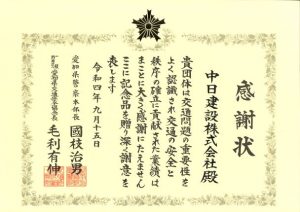 感謝状
中日建設株式会社殿
貴団体は交通問題の重要性を
よく認識され交通の安全と
秩序の確立に貢献された業績は
まことに大きく感謝にたえません
ここに記念品を贈り深く謝意を
表します
令和四年九月十五日
愛知県警察本部長 國枝治男
愛知県交通安全協会長 毛利有伸